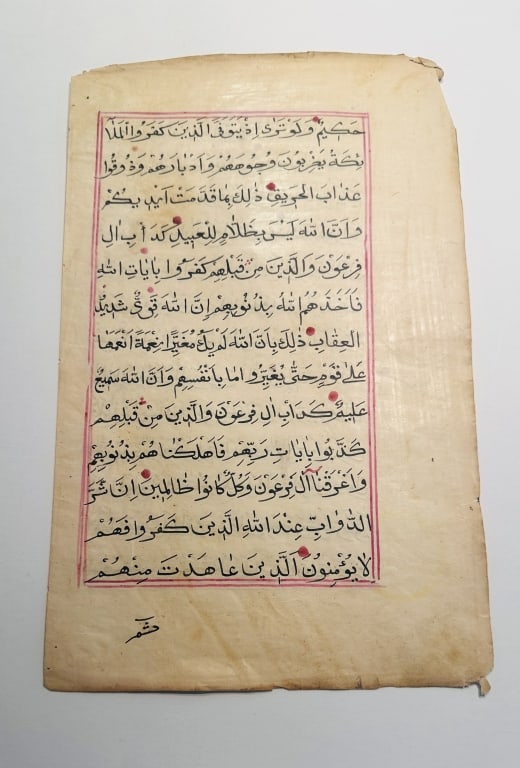 حَكِيمٌ وَلَوْ تَرٰى اِذْ يَتَوَفَّى الَّذِينَ كَفَرُوا الْمَلَا
ئِكَةُ يَضْرِبُونَ وُجُوهَهُمْ وَاَدْبَارَهُمْ وَذُوقُوا
عَذَابَ الْحَرِيقِ ذٰلِكَ بِمَا قَدَّمَتْ اَيْدِيكُمْ
وَاَنَّ اللهَ لَيْسَ بِظَلَّامٍ لِلْعَبِيدِ كَدَأْبِ اٰلِ
فِرْعَوْنَ وَالَّذِينَ مِنْ قَبْلِهِمْ كَفَرُوا بِاٰيَاتِ اللهِ
فَاَخَذَهُمُ اللهُ بِذُنُوبِهِمْ اِنَّ اللهَ قَوِيٌّ شَدِيدُ
الْعِقَابِ ذٰلِكَ بِاَنَّ اللهَ لَمْ يَكُ مُغَيِّرًا نِعْمَةً اَنْعَمَهَا
عَلٰى قَوْمٍ حَتّٰى يُغَيِّرُوا مَا بِاَنْفُسِهِمْ وَاَنَّ اللهَ سَمِيعٌ
عَلِيمٌ كَدَأْبِ اٰلِ فِرْعَوْنَ وَالَّذِينَ مِنْ قَبْلِهِمْ
كَذَّبُوا بِاٰيَاتِ رَبِّهِمْ فَاَهْلَكْنَاهُمْ بِذُنُوبِهِمْ
وَاَغْرَقْنَا اٰلَ فِرْعَوْنَ وَكُلٌّ كَانُوا ظَالِمِينَ اِنَّ شَرَّ
الدَّوَابِّ عِنْدَ اللهِ الَّذِينَ كَفَرُوا فَهُمْ
لَا يُؤْمِنُونَ اَلَّذِينَ عَاهَدْتَ مِنْهُمْ
ثم